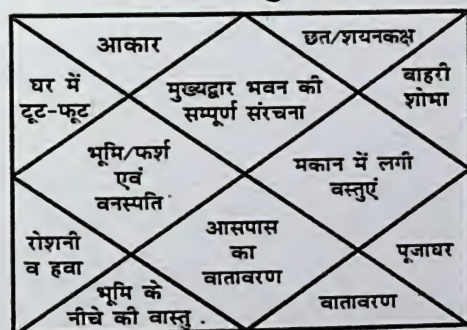 आकार
छत/शयनकक्ष
घर में
टूट-फूट
मुख्यद्वार भवन की
सम्पूर्ण संरचना
बाहरी
शोभा
भूमि/फर्श
एवं
वनस्पति
मकान में लगी
वस्तुएं
रोशनी
व हवा
आसपास
का
वातावरण
पूजाघर
भूमि के
नीचे की वास्तु
वातावरण